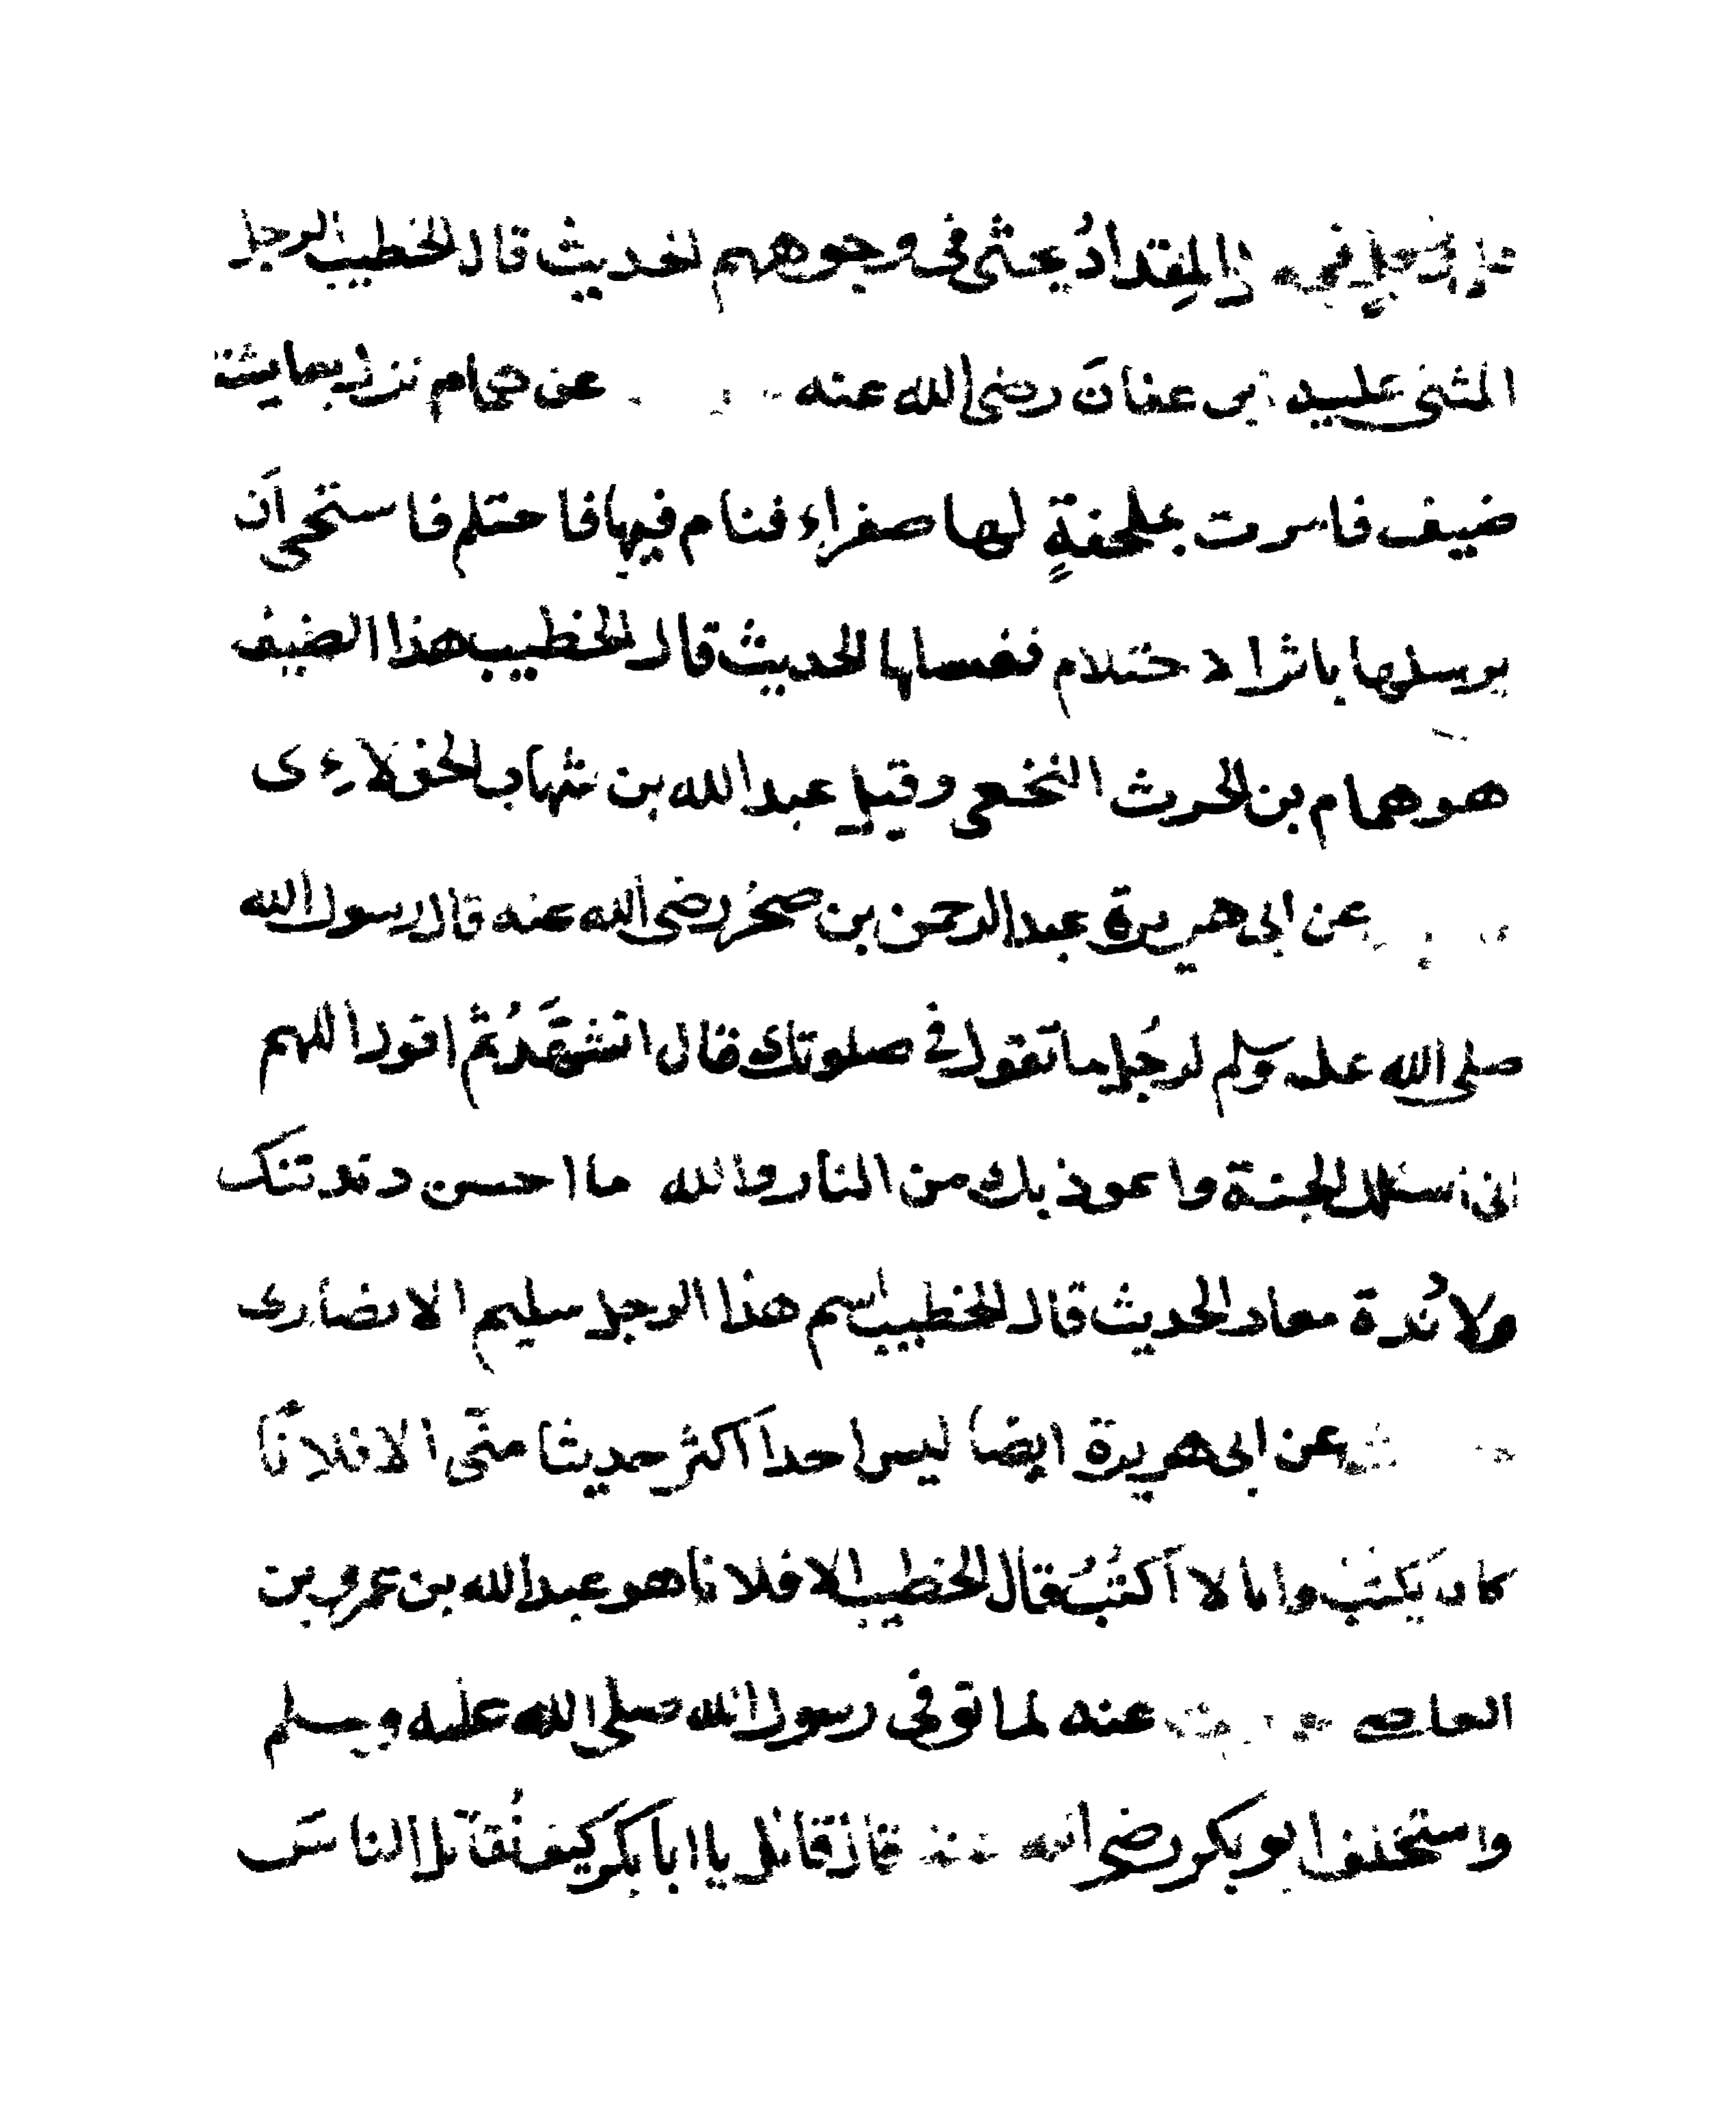 على رجل فجعل المقدادُ يحثى فى وجوههم الحديث قال الخطيب الرجل
المثنى عليه بن عفانَ رضى الله عنه عن همام نزل بعايشة
ضيف فامرت بملحفةٍ لها صفراءِ فنام فيها فاحتلم فاستحى اَن
يرسلها باثر الاحتلام فغسلها الحديث قال الخطيب هذا الضيف
هو همام بن الحرث النخعى وقيل عبد الله بن شهاب الخولاءِى
عن ابى هريرة عبد الرحمن بن صخر رضى الله عنه قال رسول الله
صلى الله عليه وسلم لرجُل ما تقول فى صلوتك قال اتشهَّدُ ثم اقول اللهم
انى اسئلك الجنة واعوذ بك من النار والله ما احسن دندنتك
ولا دُندنة معاد الحديث قال الخطيب اسم هذا الرجل سليم الانصارى
عن ابى هريرة ايضا ليس احداَ اكثر حديثا منّى الا فلاناً
كان يَكتب وانا لا اَكتُبُ قال الخطيب الا فلانا هو عبد الله بن عمرو بن
العاص عنه لما توفى رسول الله صلى الله عليه وسلم
واستخلف ابو بكر رضى الله عنه قال قائل يا ابا بكر كيف نُقاَتل الناسَ